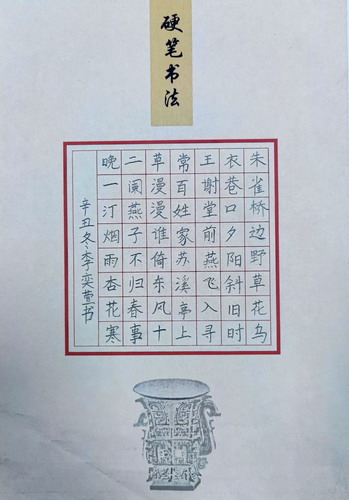 硬笔书法
朱雀桥边野草花乌
衣巷口夕阳斜旧时
王谢堂前燕飞入寻
常百姓家苏溪亭上
草漫漫谁倚东风十
二阑燕子不归春事
晚一汀烟雨杏花寒
辛丑冬李奕萱书